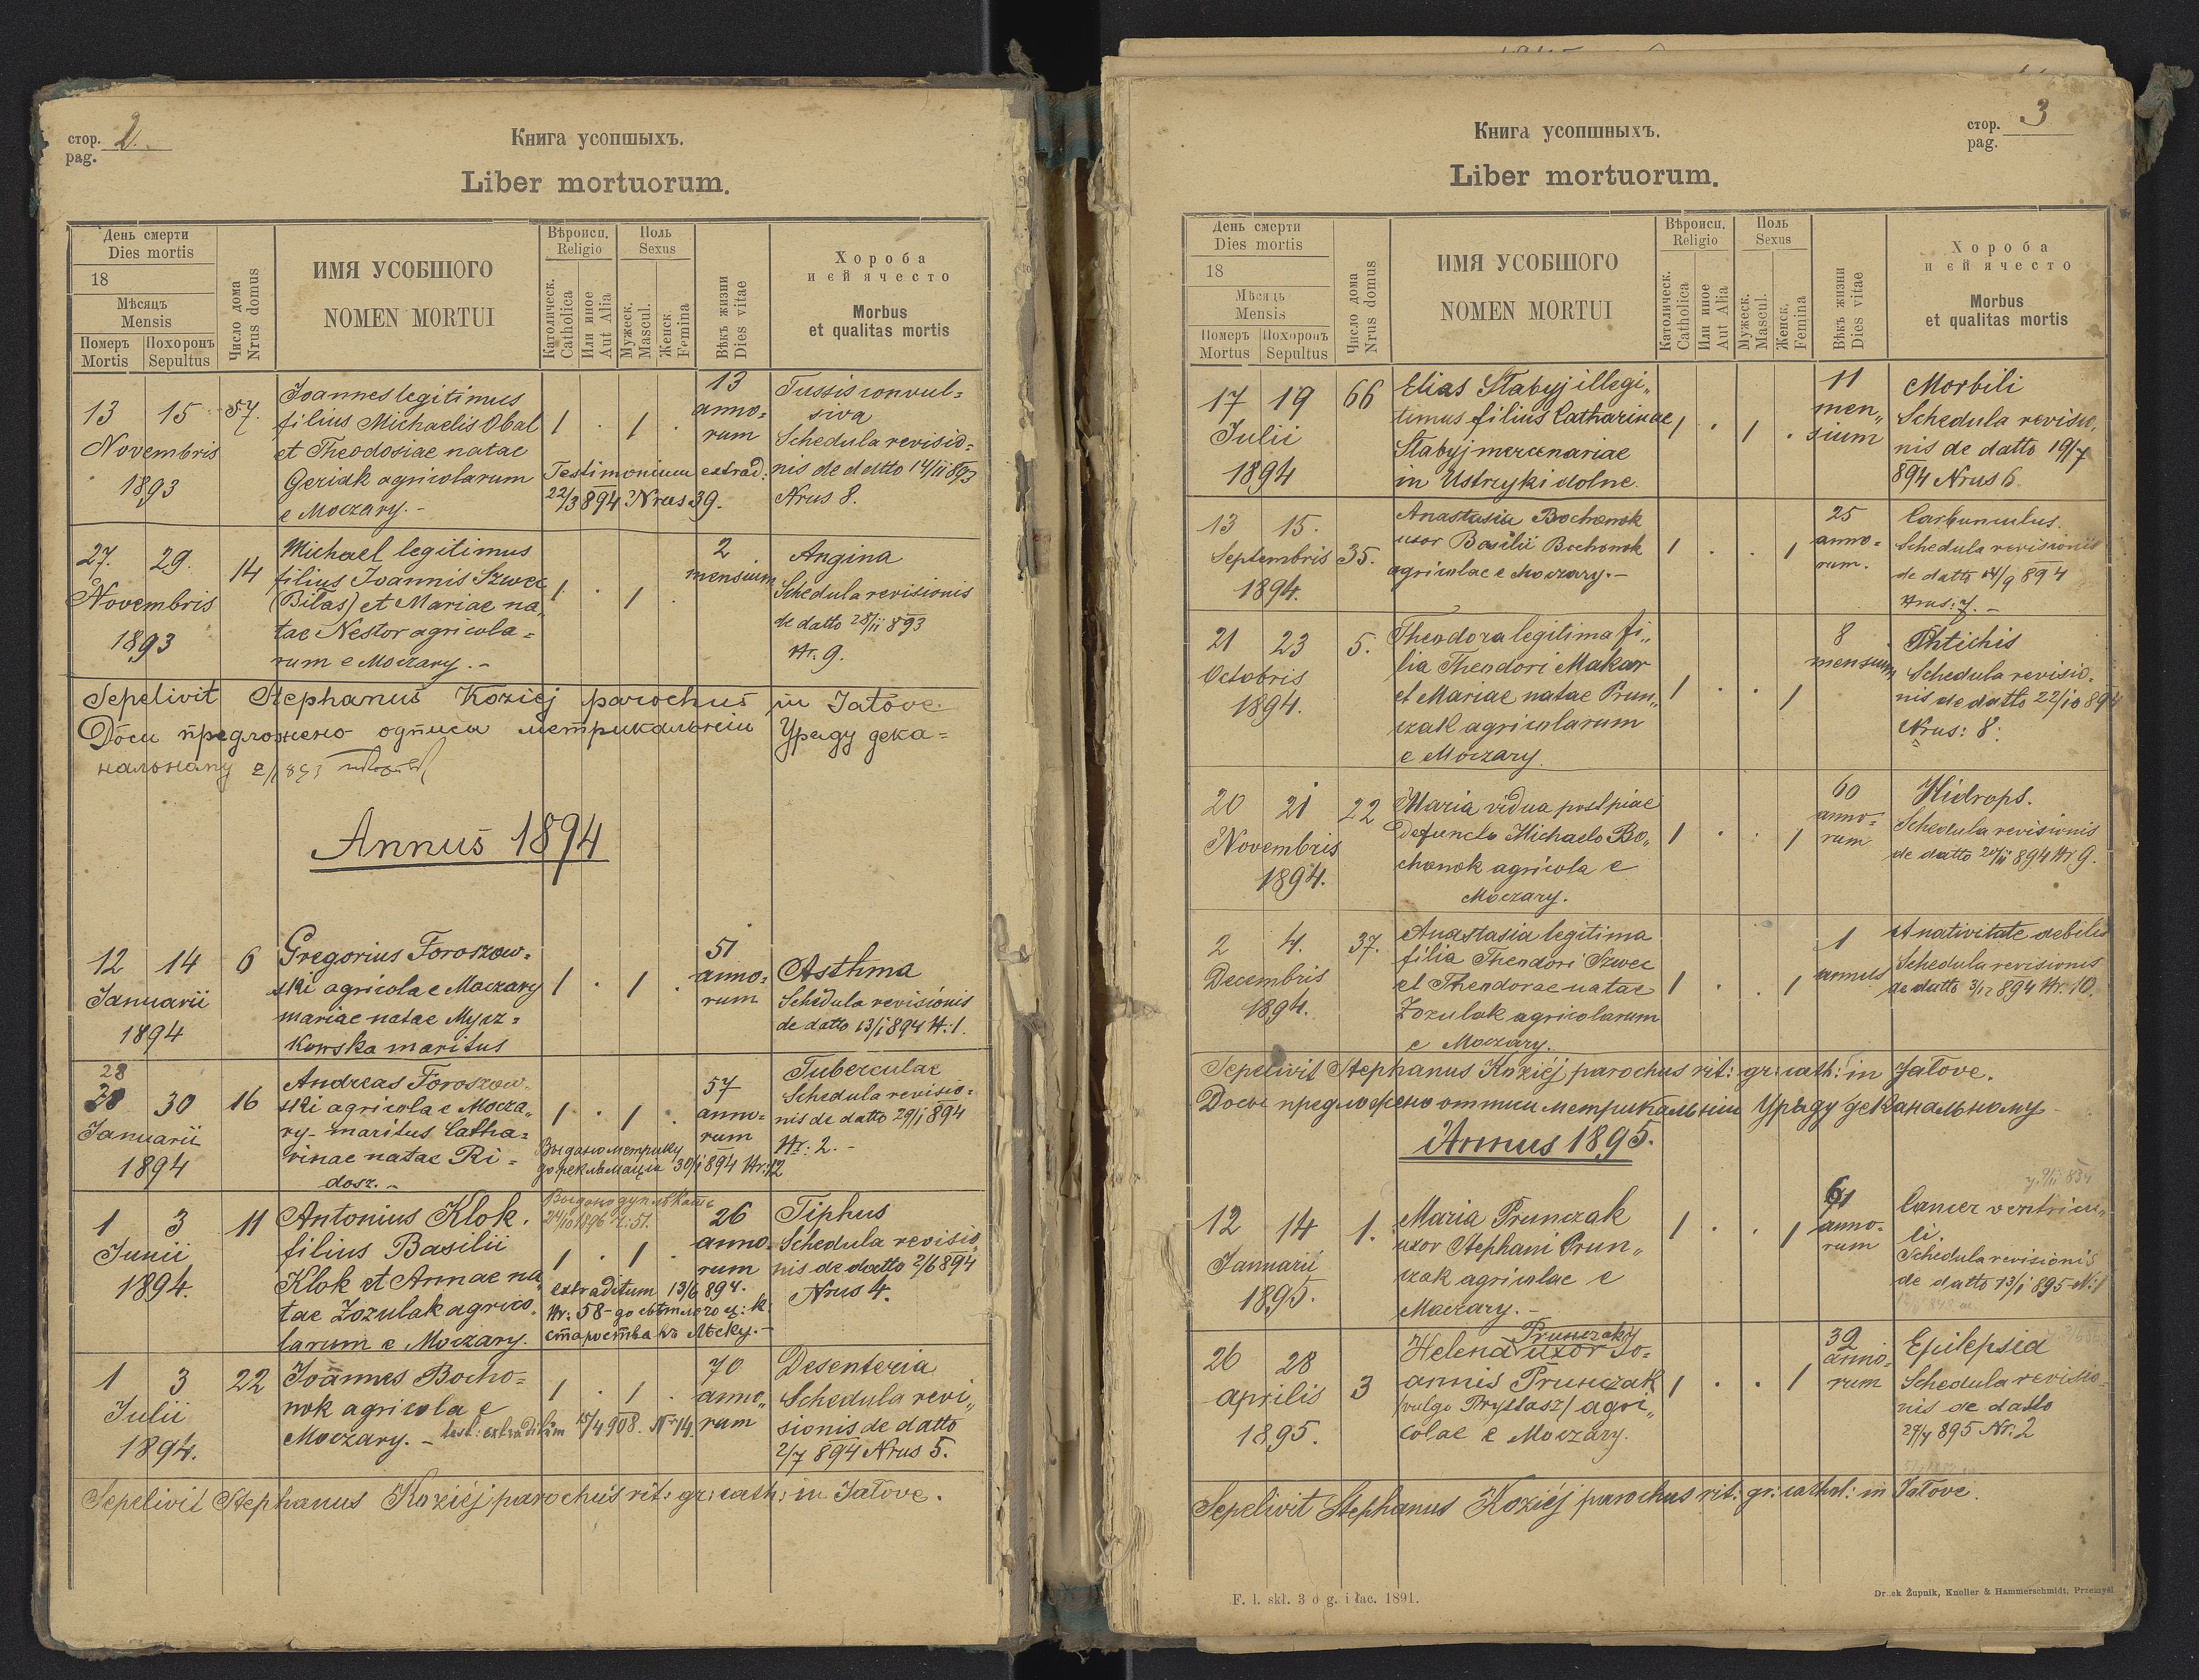 стор. 2.
pag.
Книга усопшыхъ.
Liber mortuorum.
День смерти
Dies mortis
18
Мѣсяцъ
Mensis
Померъ Похоронъ
Mortis Sepultus
Число дома
Nrus domus
ИМЯ УСОБШОГО
NOMEN MORTUI
Вѣроисп.
Religio
Католическ.
Catholica
Или иное
Aut Alia
Поль
Sexus
Мужеск.
Mascul.
Женск.
Femina
Вѣкъ жизни
Dies vitae
Хороба
и ей ячесто
Morbus
et qualitas mortis
13 15 57.
Novembris
1893
Joannes legitimus
filius Michaelis Obal
et Theodosiae natae
Geriak agricolarum
e Moczary. -
1 . 1 .
Testimonium extrad:
22/3 894 Nrus 39.
13
anno=
rum
Tussis convul-
siva
Schedula revisio=
nis de datto 14/11 893
Nrus 8.
27. 29. 14
Novembris
1893
Michael legitimus
filius Joannis Szwec
(Bilas) et Mariae na„
tae Nestor agricola=
rum e Moczary. -
1 . 1 .
2
mensium
Angina
Schedula revisionis
de datto 28/11 893
Nr. 9.
Sepelivit Stephanus Koziej parochus in Jalove.
Доси предложено одписи метрикальніи Уряду дека=
нальному
Annus 1894
12 14 6
Januarii
1894
Gregorius Foroszow=
ski agricola e Moczary
mariae natae Mysz=
kowska maritus
1 . 1 .
51
anno=
rum
Asthma
Schedula revisionis
de datto 13/1 894 N: 1.
28
30 16
Januarii
1894
Andreas Foroszow-
ski agricola e Mocza„
ry - maritus Catha=
rinae natae Ri=
dosz. -
1 . 1 .
Выдано метрику
до рекльмаціи 30/1 894 Nr: 12
57
anno=
rum
Tuberculae
Schedula revisio=
nis de datto 29/1 894
Nr: 2. -
1 3 11
Junii
1894.
Antonius Klok.
filius Basilii
Klok et Annae na„
tae Zozulak agrico„
larum e Moczary.
Выдано дупликатъ
24/10 1896 N: 51.
1 . 1 .
extraditum 13/6 894.
Nr: 58 - до свѣтлого ц: к:
староства въ Лѣску. -
26
anno=
rum
Tiphus
Schedula revisio„
nis de datto 2/6 894
Nrus 4.
1 3 22
Julii
1894.
Joannes Bocho=
nok agricola e
Moczary. - test: extraditum 15/4 908. Nr 14.
1 . 1 .
70
anno„
rum
Desenteria
Schedula revi„
sionis de datto
2/7 894 Nrus 5.
Sepelivit Stephanus Koziéj parochus rit: gr: cath: in Jalove.
стор. 3
pag.
Книга усопшныхъ.
Liber mortuorum.
День смерти
Dies mortis
18
Мѣсяць
Mensis
Померъ Похоронъ
Mortus Sepultus
Число дома
Nrus domus
ИМЯ УСОБШОГО
NOMEN MORTUI
Вѣроисп.
Religio
Католическ.
Catholica
Или иное
Aut Alia
Поль
Sexus
Мужеск.
Mascul.
Женск.
Femina
Вѣкъ жизни
Dies vitae
Хороба
и ей ячесто
Morbus
et qualitas mortis
17 19 66
Julii
1894
Elias Stabyj illegi„
timus filius Catharinae
Stabyj mercenariae
in Ustrzyki dolne.
1 . 1 .
11
men„
sium
Morbili
Schedula revisio„
nis de datto 19/7
894 Nrus 6
13 15. 35.
Septembris
1894.
Anastasia Bochonok
uxor Basilii Bochonok
agricolae e Moczary. -
1 . . 1
25
anno=
rum.
Carbunculus.
Schedula revisionis
de datto 14/9 894
Nrus: 7. -
21 23 5.
Octobris
1894.
Theodora legitima fi„
lia Theodori Makar
et Mariae natae Prun„
czak agricolarum
e Moczary.
1 . . 1
8
mensium
Phtichis
Schedula revisio.
nis de datto 22/10 894
Nrus: 8.
20 21 22
Novembris
1894.
Maria vidua post piae
defuncto Michaelo Bo„
chonok agricola e
Moczary.
1 . . 1
60
anno=
rum
Hidrops.
Schedula revisionis
de datto 20/11 894 Nr 9.
2 4. 37.
Decembris
1894.
Anastasia legitima
filia Theodori Szwec
et Theodorae natae
Zozulak agricolarum
e Moczary.
1 . . 1
1
annus
A nativitate debilis
Schedula revisionis
de datto 3/12 894 Nr. 10.
Sepelivit Stephanus Koziéj parochus rit: gr: cath: in Jalove.
Досы предложено отписи метрикальніи Уряду деканальному
Annus 1895.
12 14 1.
Januarii
1895.
Maria Prunczak
uxor Stephani Prun„
czak agricolae e
Moczary. -
1 . . 1
61
anno-
rum
Cancer ventricu„
li.
Schedula revisionis
de datto 13/1 895 N: 1
26 28 3
aprilis
1895.
Prunczaky
Helena uxor Jo=
annis Prunczak
(vulgo Pryslasz) agri„
colae e Moczary.
1 . . 1
32
anno-
rum
Epilepsia
Schedula revisio=
nis de datto
27/4 895 Nr. 2
Sepelivit Stephanus Koziéj parochus rit: gr: cathol: in Jalove.
F. 1. skł. 3 d g. i łac. 1891.
Druk Żupnik, Knoller & Hammerschmidt, Przemyśl